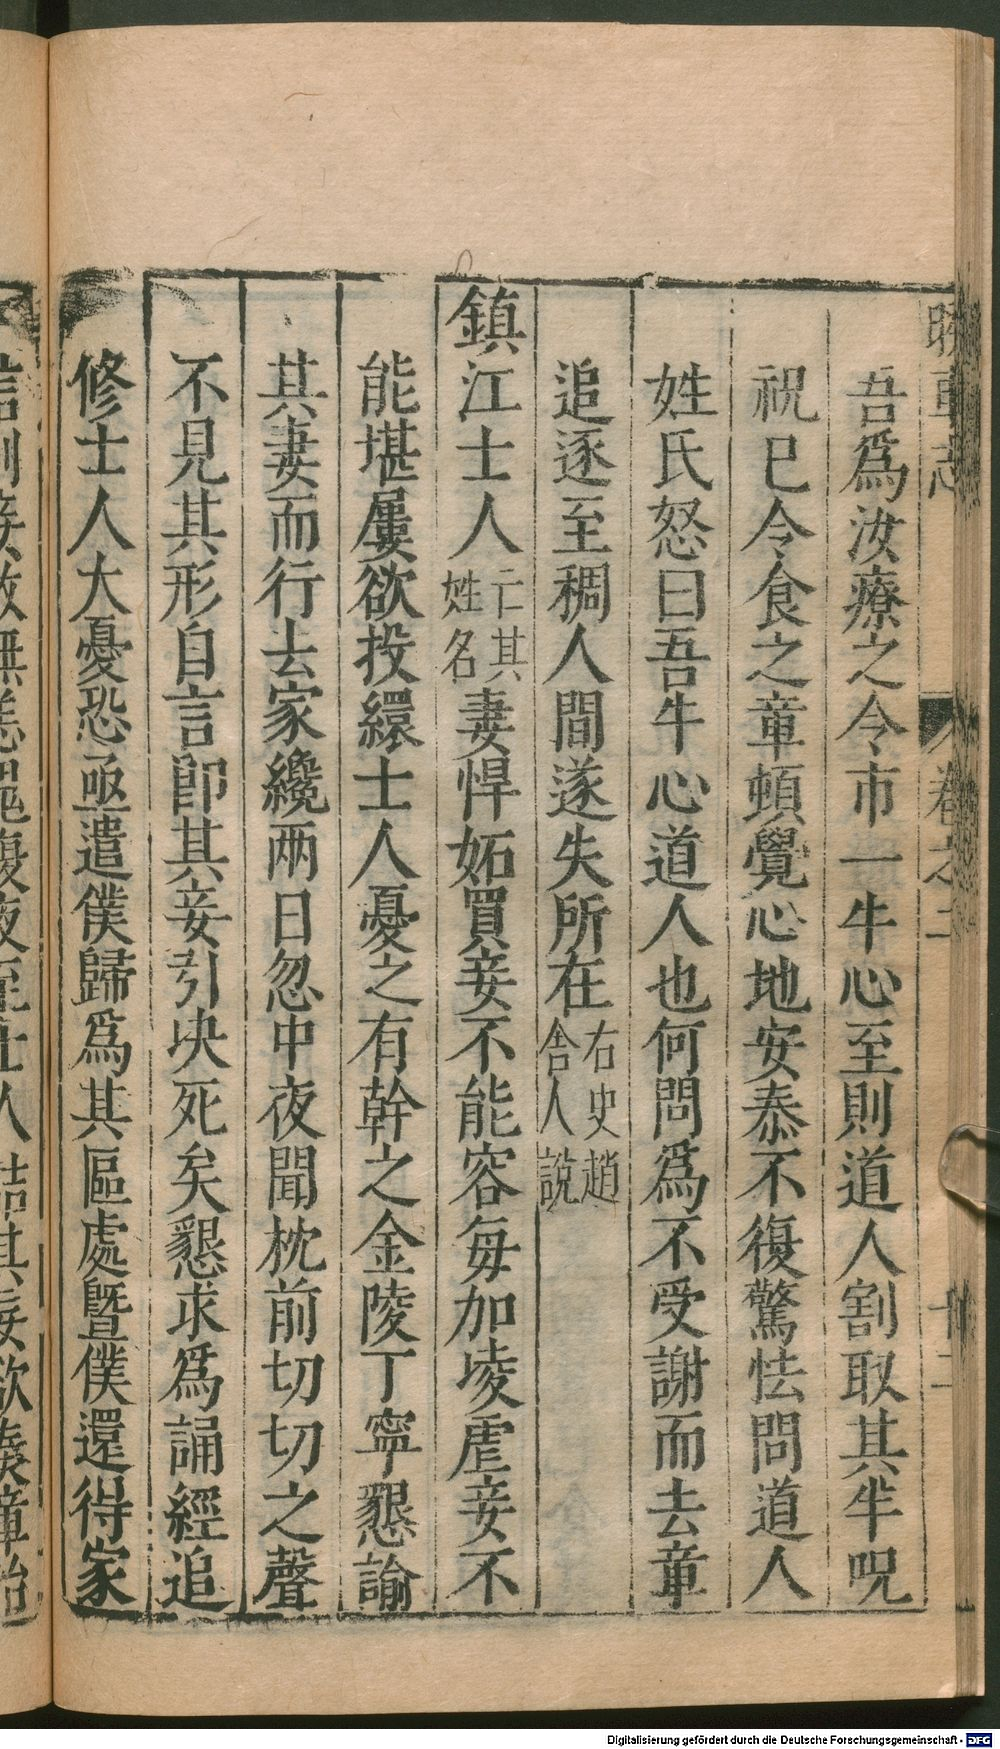 吾爲汝療之令市一牛心至則道人割取其半呪
祝巳令食之章頓覺心地安泰不復驚怯問道人
姓氏怒曰吾牛心道人也何問爲不受謝而去章
追逐至稠人間遂失所在右史趙舍人說
鎮江士人亡其姓名妻悍妬買妾不能容每加凌虐妾不
能堪屢欲投繯士人憂之有幹之金陵丁寧懇諭
其妻而行去家纔两日忽中夜聞枕前切切之聲
不見其形自言卽其妾引决死矣懇求爲誦經追
修士人大憂恐亟遣僕歸爲其區處曁僕還得家
卷之二
十二
Digitalisierung gefördert durch die Deutsche Forschungsgemeinschaft - DFG